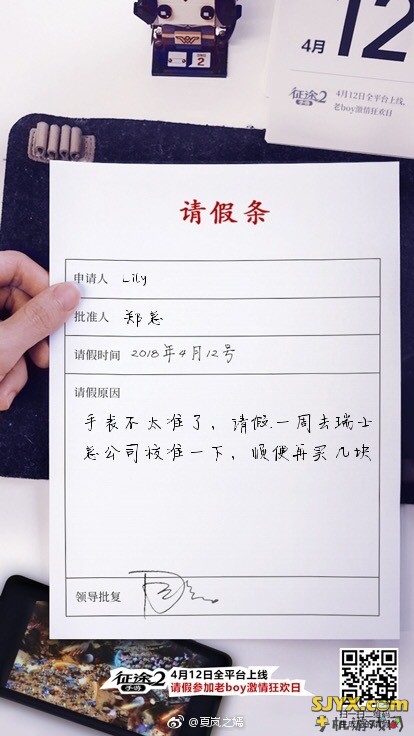 4月
12
征途2
手游
4月12日全平台上线
老boy激情狂欢日
请假条
申请人 Lily
批准人 郑总
请假时间 2018年4月12号
请假原因
手表不太准了，请假一周去瑞士
总公司校准一下，顺便再买几块
领导批复
征途2
手游
4月12日全平台上线
请假参加老boy激情狂欢日
@夏岚之嫣
SJYX.com